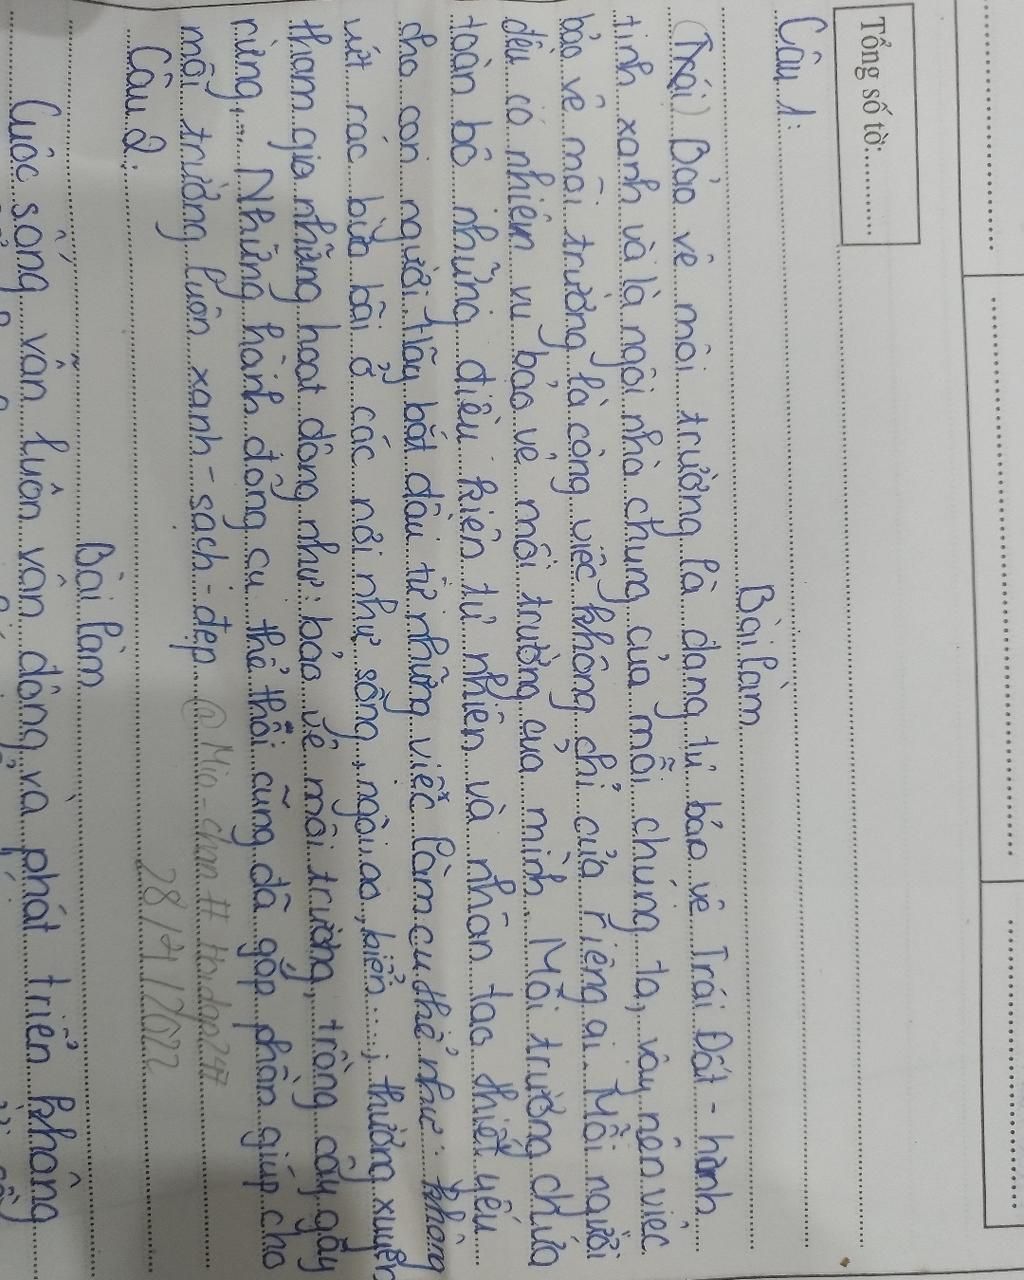 Tổng số tờ:............
Bài làm
Câu 1:
(Trái) Bảo vệ môi trường là đang tự bảo vệ Trái Đất - hành
tinh xanh và là ngôi nhà chung của mỗi chúng ta, vậy nên việc
bảo vệ môi trường là công việc không chỉ của riêng ai. Mỗi người
đều có nhiệm vụ bảo vệ môi trường của mình. Môi trường chứa
toàn bộ những điều kiện tự nhiên và nhân tạo thiết yếu
cho con người. Hãy bắt đầu từ những việc làm cụ thể như: không
vứt rác bừa bãi ở các nơi như sông, ngòi, ao, biển...; thường xuyên
tham gia những hoạt động như: bảo vệ môi trường, trồng cây gây
rừng,... Những hành động cụ thể thôi cũng đã góp phần giúp cho
môi trường luôn xanh - sạch - đẹp. @Mio-chan # Hoidap247
Câu 2: 28/7/2022
Bài làm
Cuộc sống vẫn luôn vận động và phát triển không